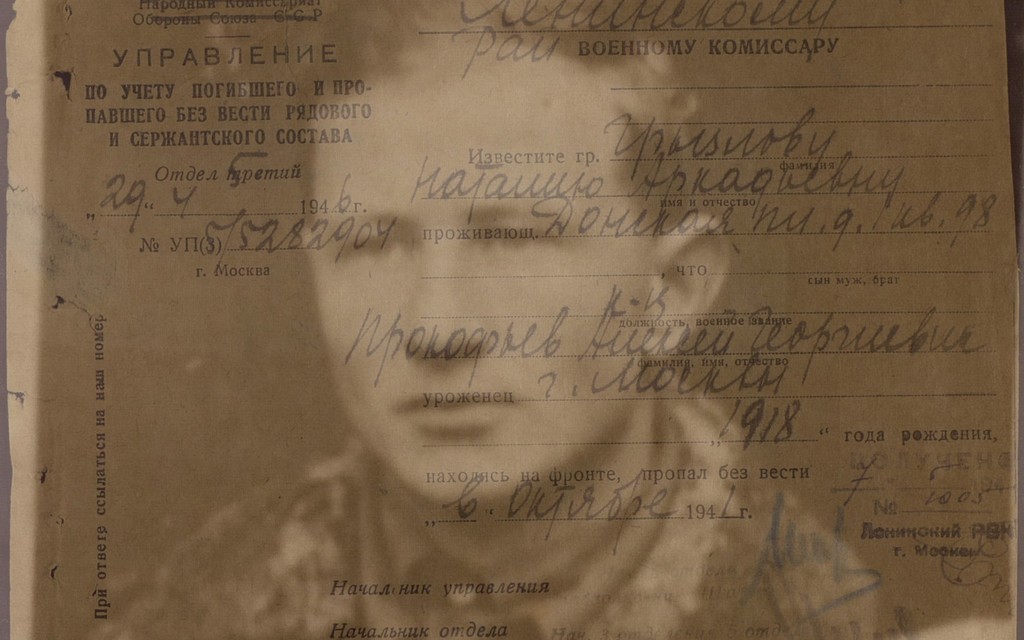 Народный Комиссариат
Обороны Союза ССР
УПРАВЛЕНИЕ
ПО УЧЕТУ ПОГИБШЕГО И ПРО-
ПАВШЕГО БЕЗ ВЕСТИ РЯДОВОГО
И СЕРЖАНТСКОГО СОСТАВА
Отдел третий
5
„29" 4 1946 г.
№ УП(3)/5282904
г. Москва
При ответе ссылаться на наш номер
Ленинскому
Рай ВОЕННОМУ КОМИССАРУ
Известите гр. Грызлову
фамилия
Наталию Аркадьевну
имя и отчество
проживающ. Донская пл. д. 1 кв. 98
, что
сын муж, брат
к-к
должность, военное звание
Прокофьев Алексей Георгиевич
фамилия, имя, отчество
уроженец г. Москвы
„1918" года рождения,
находясь на фронте, пропал без вести
„в" октябре 1941 г.
ПОЛУЧЕНО
7 5 194
№ 1005
Ленинский РВК
г. Москва
Начальник управления
Начальник отдела